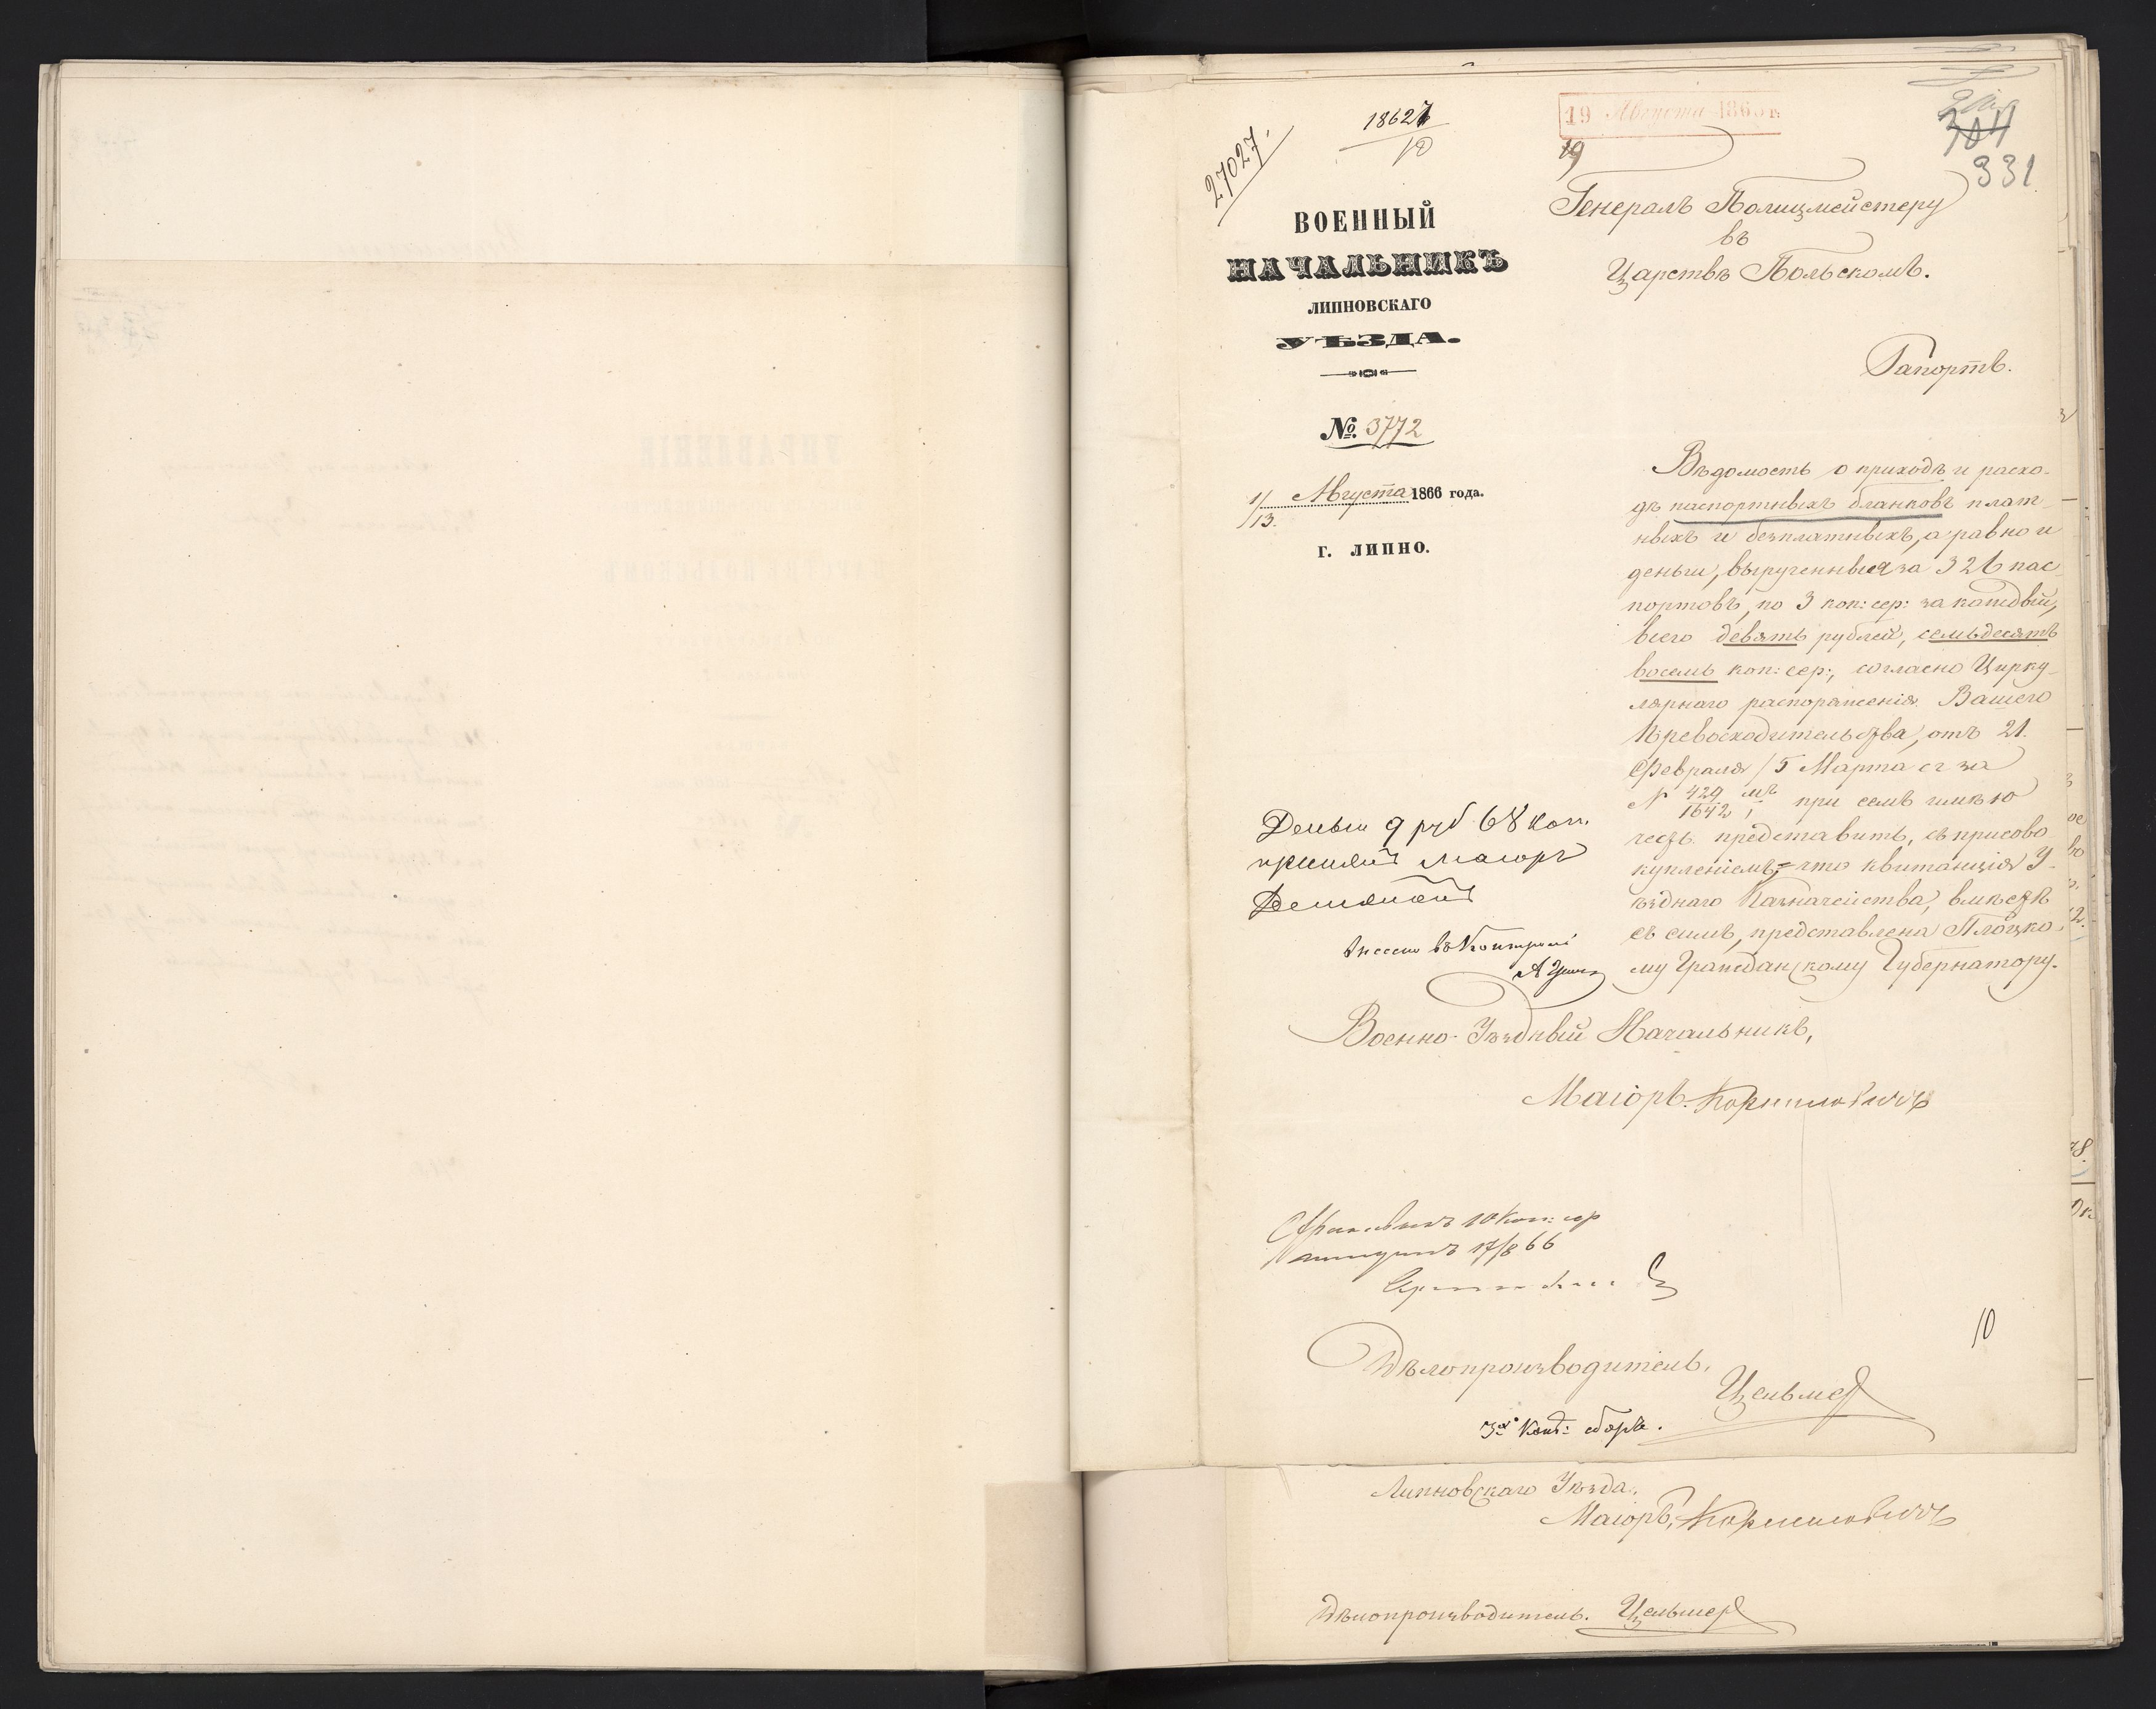 27027.
18627
10
19 Августа 186 г.
19
304
331
ВОЕННЫЙ
НАЧАЛЬНИКЪ
ЛИПНОВСКАГО
УѢЗДА.
№. 3772
1/13. Августа 1866 года.
Г. ЛИПНО.
Генералъ Полицмейстеру
въ
Царствѣ Польскомъ.
Рапортъ.
Вѣдомость о приходѣ и расхо-
дѣ паспортныхъ бланковъ плат-
ныхъ и безплатныхъ, а равно и
деньги, вырученныя за 326 пас-
портовъ, по 3 коп: сер: за каждый,
всего девять рублей, семьдесятъ
восемь коп: сер:, согласно Цирку-
лярнаго распоряженія Вашего
Превосходительства, отъ 21.
Февраля / 5 Марта сг за
№ 429/1642, при семъ имѣю
честь представить, съ присово
купленіемъ, что квитанція У-
ѣзднаго Казначейства, вмѣстѣ
съ симъ, представлена Плоцко-
му Гражданскому Губернатору.
Деньги 9 руб 68 коп.
принялъ Маіоръ
внесено въ Контроль
Военно-Уѣздный Начальникъ,
Маіоръ Корниловичъ
10 Коп: сер
17/8 66
10
Дѣлопроизводитель,
Цельмер
Липновскаго Уѣзда,
Маіоръ, Корниловичъ
Дѣлопроизводитель. Цельмер